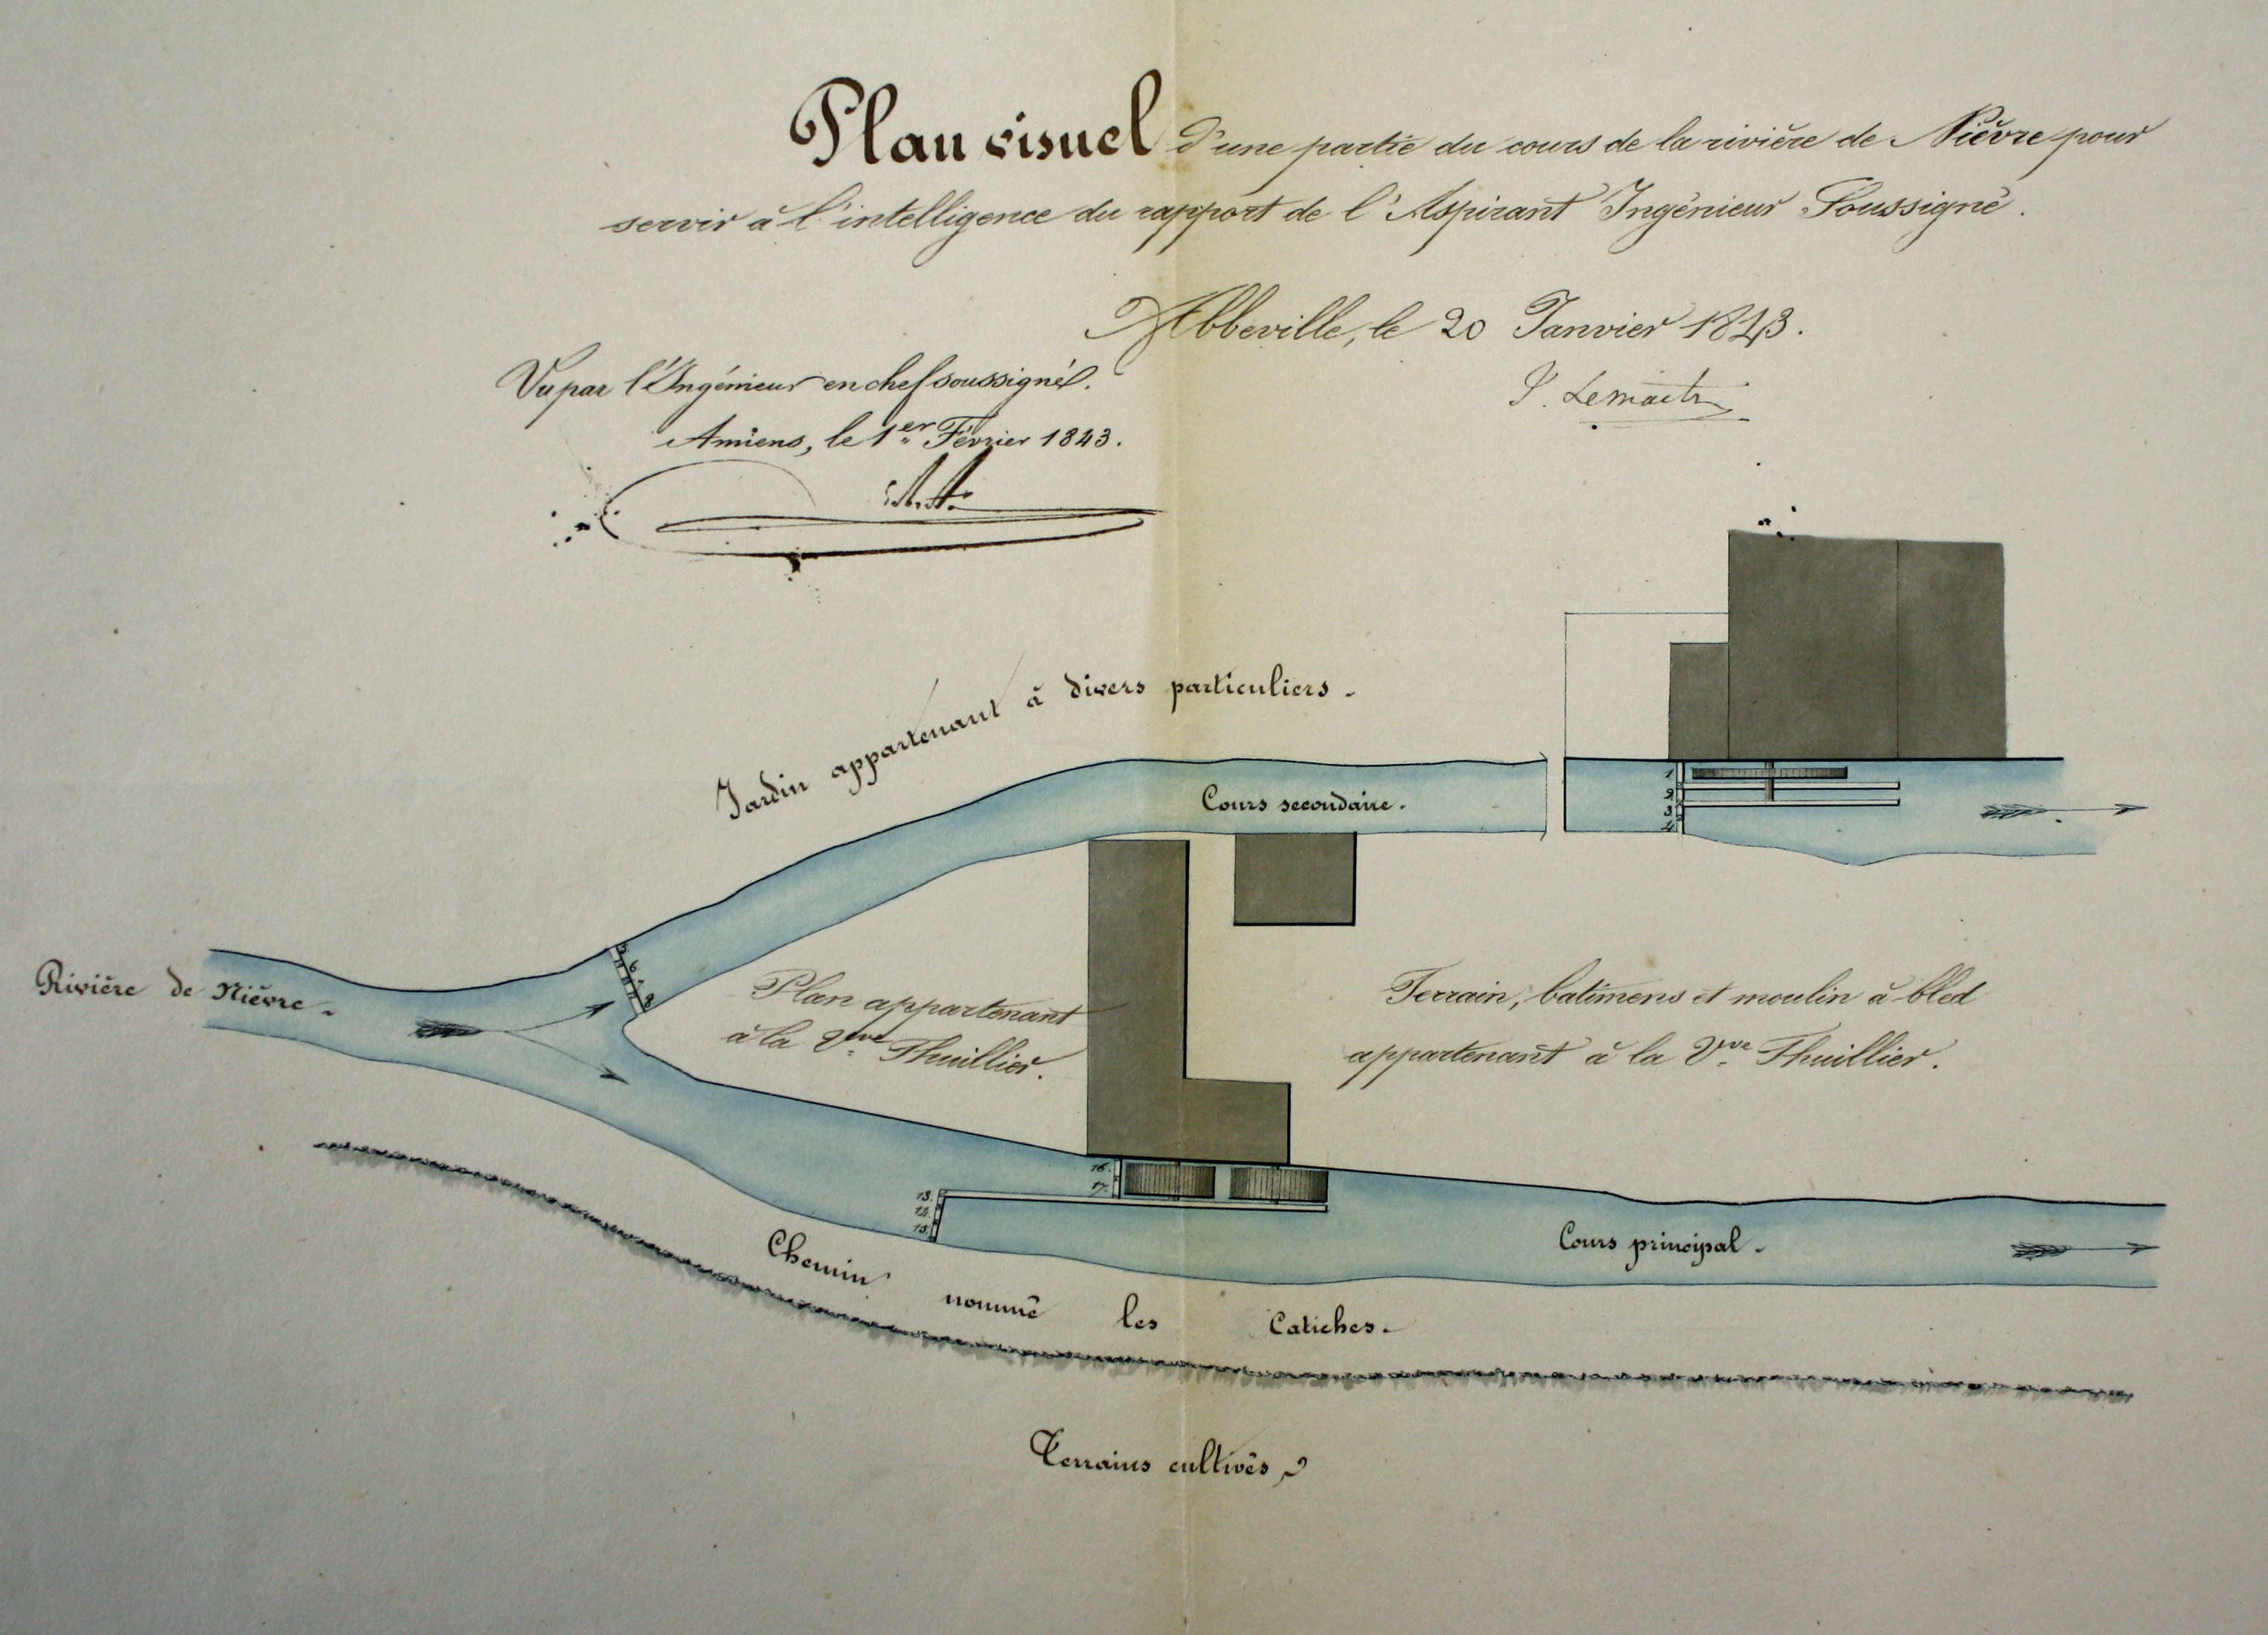 Plan visuel d'une partie du cours de la rivière de Nièvre pour
servir à l'intelligence du rapport de l'Aspirant Ingénieur Soussigné.
Abbeville, le 20 Janvier 1843.
Vu par l'Ingénieur en chef soussigné.
Amiens, le 1er Février 1843.
Jardin appartenant à divers particuliers.
Cours secondaire.
1
2
3
4
Rivière de Nièvre.
5
6
7
8
Plan appartenant
à la Vve Thuillier.
Terrain, batimens et moulin à bled
appartenant à la Vve Thuillier.
16.
17.
13.
14.
15.
Cours principal.
Chemin nommé les Catiches.
Terrains cultivés